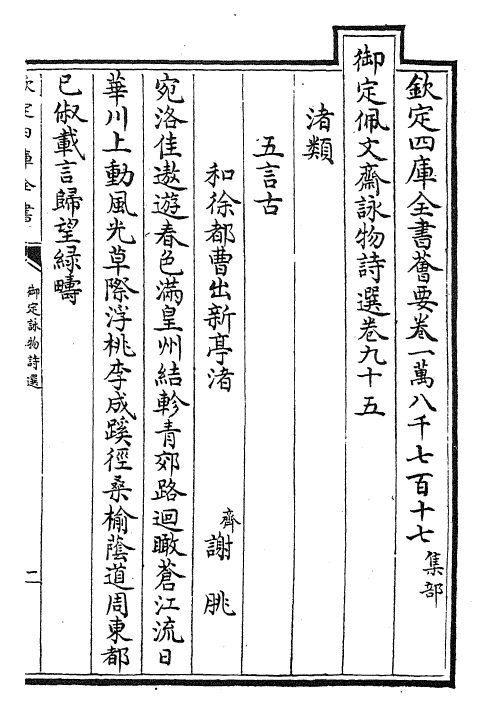 欽定四庫全書薈要卷一萬八千七百十七 集部
御定佩文齋詠物詩選卷九十五
渚類
五言古
和徐都曹出新亭渚
齊 謝朓
宛洛佳遨遊春色滿皇州結軫青郊路迴瞰蒼江流日
華川上動風光草際浮桃李成蹊徑桑榆蔭道周東都
已俶載言歸望緑疇
欽定四庫全書
御定詠物詩選